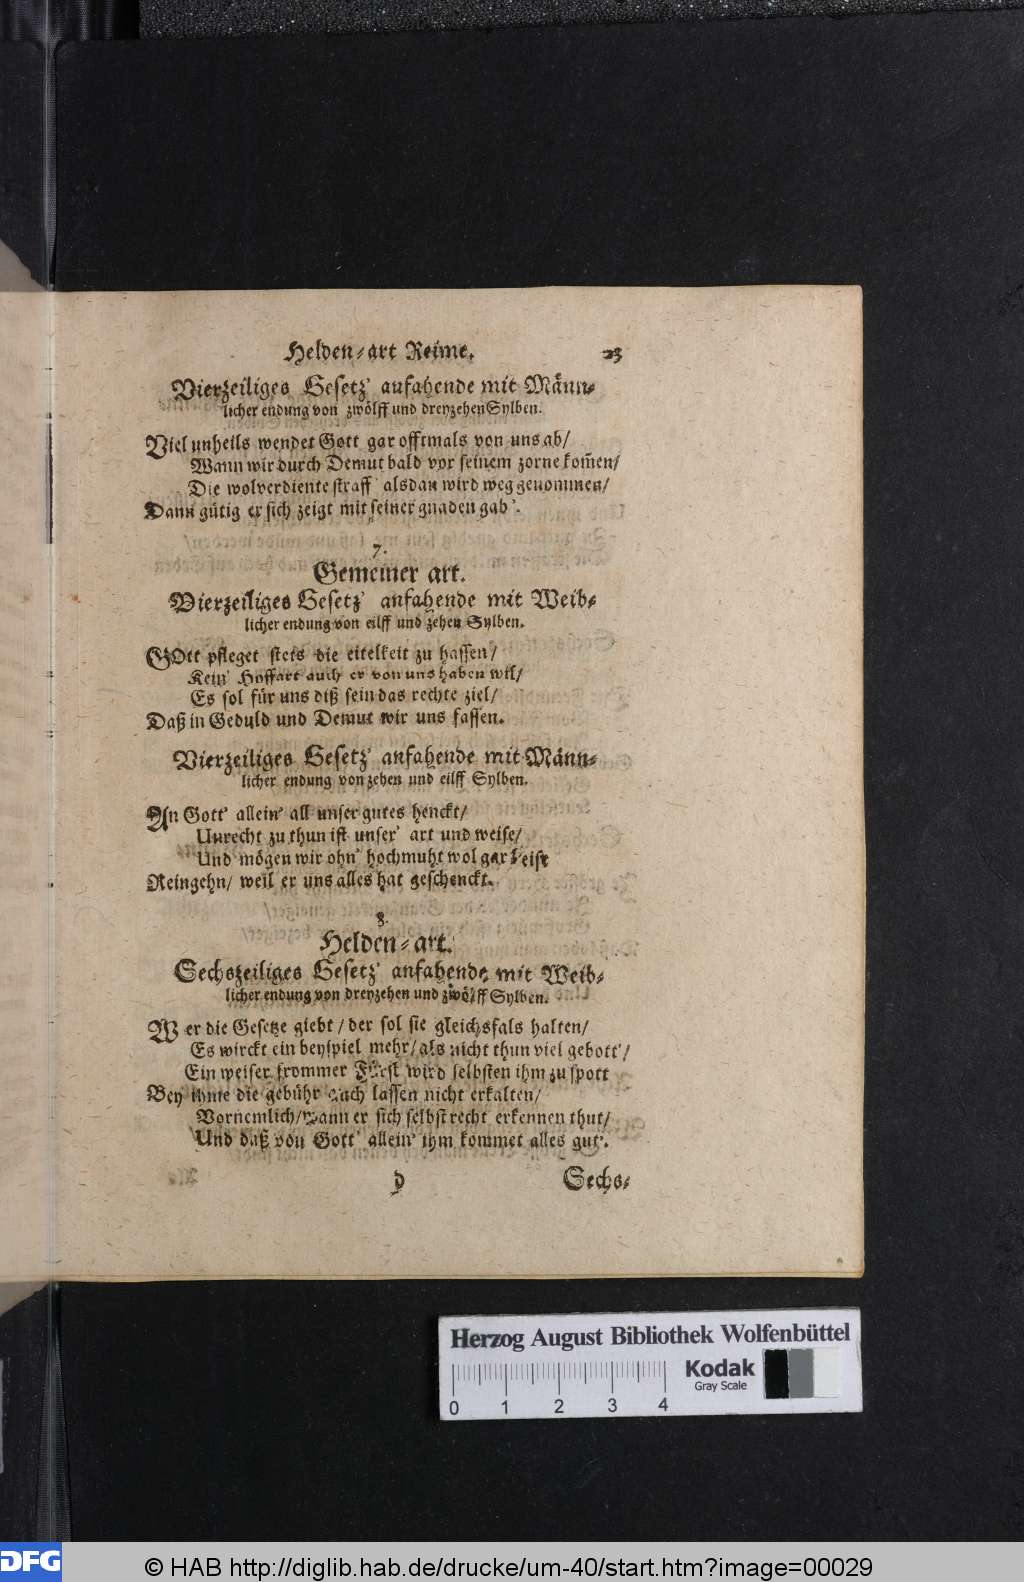 Helden-art Reime. 23
Vierzeiliges Gesetz' anfahende mit Männ-
licher endung von zwölff und dreyzehen Sylben.
Viel unheils wendet Gott gar offtmals von uns ab/
Wann wir durch Demut bald vor seinem zorne kom̃en/
Die wolverdiente straff' alsdan wird weg genommen/
Dann gütig er sich zeigt mit seiner gnaden gab'.
7.
Gemeiner art.
Vierzeiliges Gesetz' anfahende mit Weib-
licher endung von eilff und zehen Sylben.
GOtt pfleget stets die eitelkeit zu hassen/
Kein' Hoffart auch er von uns haben wil/
Es sol für uns diß sein das rechte ziel/
Daß in Geduld und Demut wir uns fassen.
Vierzeiliges Gesetz' anfahende mit Männ-
licher endung von zehen und eilff Sylben.
An Gott' allein' all unser gutes henckt/
Unrecht zu thun ist unser' art und weise/
Und mögen wir ohn' hochmuht wol gar leise
Reingehn/ weil er uns alles hat geschenckt.
8.
Helden-art.
Sechszeiliges Gesetz' anfahende mit Weib-
licher endung von dreyzehen und zwölff Sylben.
Wer die Gesetze giebt/ der sol sie gleichsfals halten/
Es wirckt ein beyspiel mehr/ als nicht thun viel gebott'/
Ein weiser frommer Fürst wird selbsten ihm zu spott
Bey ihme die gebühr auch lassen nicht erkalten/
Vornemlich/ wann er sich selbst recht erkennen thut/
Und daß von Gott' allein' ihm kommet alles gut'.
D Sechs-
Herzog August Bibliothek Wolfenbüttel
Kodak
Gray Scale
0 1 2 3 4
DFG
© HAB http://diglib.hab.de/drucke/um-40/start.htm?image=00029